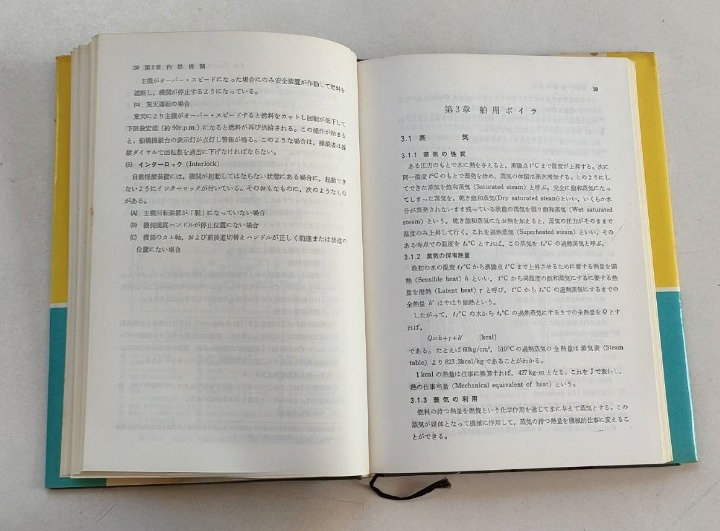 38 第2章 内燃機関
主機がオーバー・スピードになった場合にのみ安全装置が作動して燃料を
遮断し，機関が停止するようになっている。
荒天運転の場合
荒天により主機がオーバー・スピードすると燃料をカットし回転が低下して
下限設定値（約90r.p.m）になると燃料が再び供給される。この操作が始まる
と，船橋操縦台の表示灯が点灯し警報が鳴る。このような場合は，操縦者は操
縦ダイヤルで回転数を適当に下げなければならない。
(5) インターロック (Interlock)
自動操縦装置には，機関が起動してはならない状態にある場合に，起動でき
ないようにインターロックが付いている。そのおもなものに，次のようなもの
がある。
(A) 主機回転装置が「脱」になっていない場合
(B) 機側操縦ハンドルが停止位置にない場合
(C) 機側のカム軸，および前後進切替えハンドルが正しく前進または後進の
位置にない場合
39
第3章 舶用ボイラ
3.1 蒸 気
3.1.1 蒸気の性質
ある圧力のもとで水に熱を与えると，沸騰点 t°C まで温度が上昇する。次に
同一温度 t°C のもとで蒸発を始め，蒸気の体積は漸次増加する。このようにし
てできた蒸気を飽和蒸気 (Saturated steam) と呼ぶ。完全に飽和蒸気になっ
てしまった蒸気を，乾き飽和蒸気(Dry saturated steam)といい，いくらか水
分が蒸発されないまま残っている状態の蒸気を湿り飽和蒸気 (Wet saturated
steam) という。乾き飽和蒸気になお熱を加えると，蒸気の圧力がそのままで
温度のみ上昇して行く。これを過熱蒸気 (Superheated steam) といい，その
ある時点での温度を t₂°C とすれば，この蒸気を t₂°C の過熱蒸気と呼ぶ。
3.1.2 蒸気の保有熱量
飽和の水の温度 t₁°C から沸騰点 t°C まで上昇させるために要する熱量を顕熱
(Sensible heat) h といい，t°C から同温度の飽和蒸気にするに要する熱
量を潜熱 (Latent heat) r と呼び，t°C から t₂°C の過熱蒸気にするまでの
全熱量 h′ はやはり顕熱という。
したがって，t₁°C の水から t₂°C の過熱蒸気にするまでの全熱量を Q とす
れば，
Q=h+r+h′ [kcal]
である。たとえば 60kg/cm²，510°C の過熱蒸気の全熱量は蒸気表 (Steam
table) より 823.3kcal/kg であることがわかる。
1 kcal の熱量は仕事に換算すれば，427 kg-m となる。これを J で表わし，
熱の仕事当量 (Mechanical equivalent of heat) という。
3.1.3 蒸気の利用
燃料の持つ熱量を燃焼という化学作用を通じて水に与えて蒸気とする。この
蒸気が媒体となって機械に作用して，蒸気の持つ熱量を機械的仕事に変えるこ
とができる。